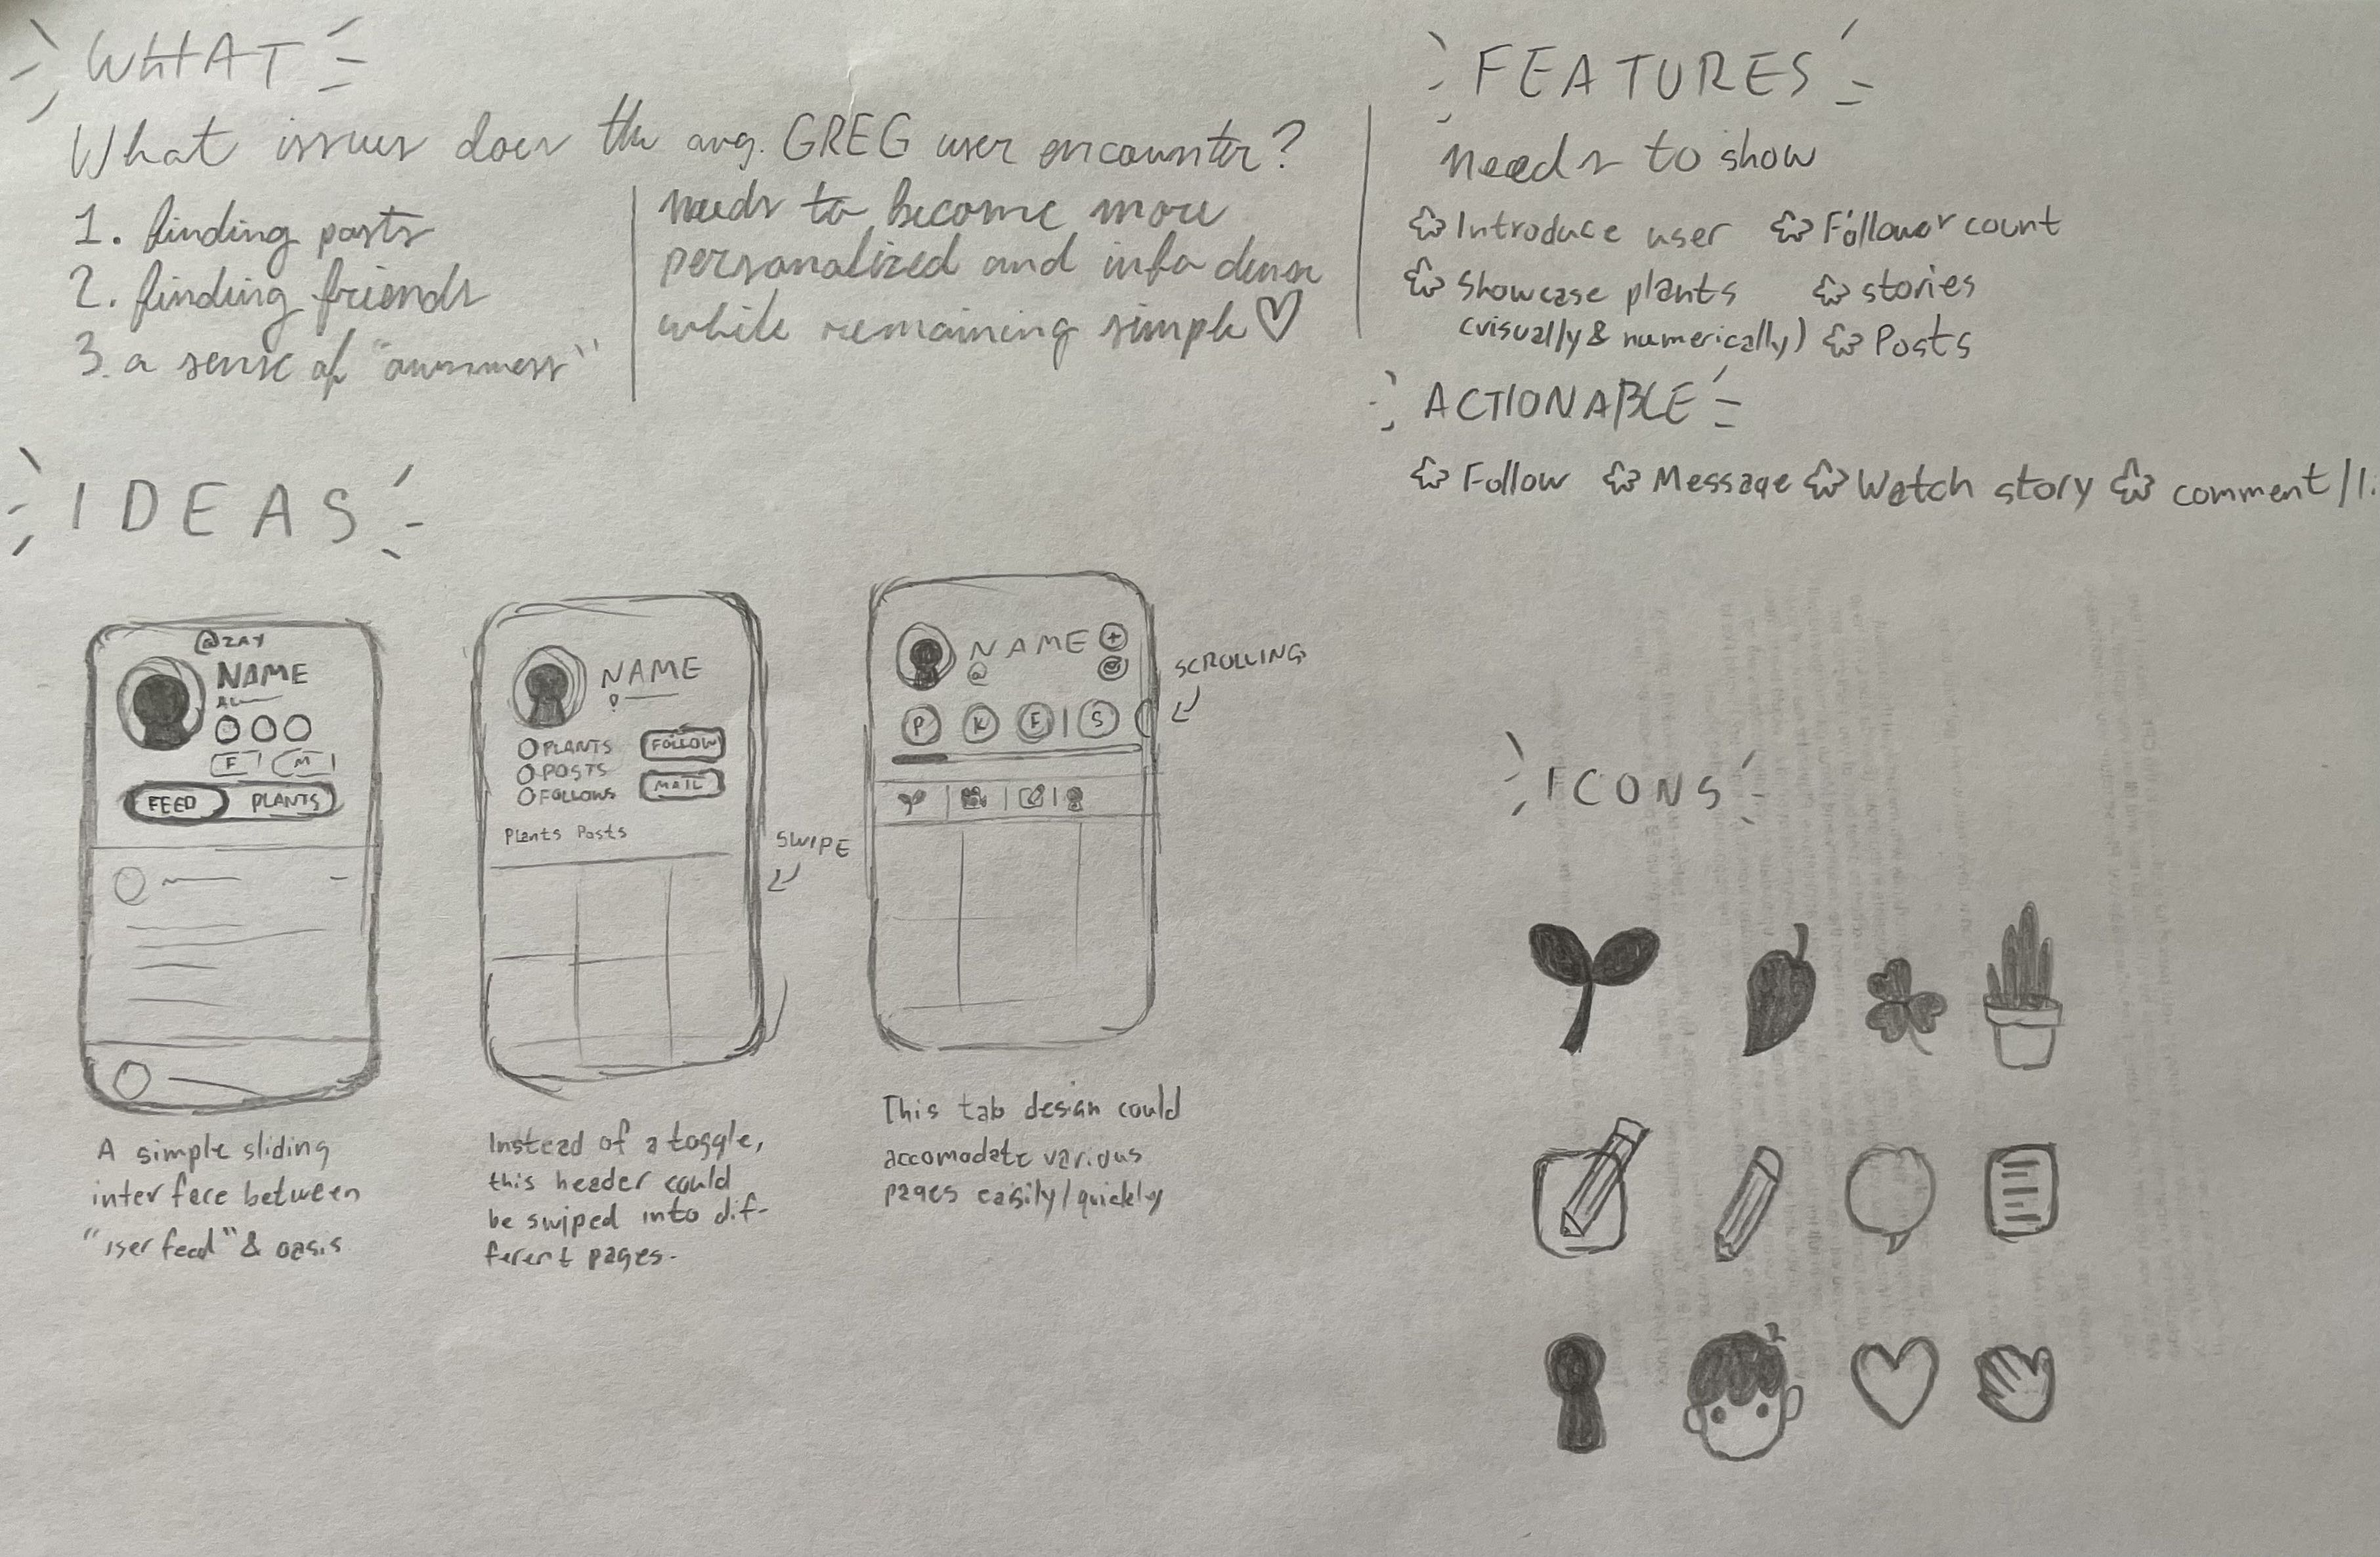 WHAT
What issues does the avg. GREG user encounter?
1. finding posts
2. finding friends
3. a sense of "ownness"
needs to become more
personalized and info dense
while remaining simple ♡
FEATURES
needs to show
Introduce user
Follower count
Showcase plants
(visually & numerically)
stories
Posts
ACTIONABLE
Follow
Message
Watch story
comment/li
IDEAS
@ZAY
NAME
F
M
FEED
PLANTS
A simple sliding
interface between
"user feed" & oasis
NAME
PLANTS
POSTS
FOLLOWS
FOLLOW
MAIL
Plants Posts
SWIPE
Instead of a toggle,
this header could
be swiped into dif-
ferent pages.
NAME
+
@
P
K
F
S
SCROLLING
This tab design could
accomodate various
pages easily/quickly
ICONS